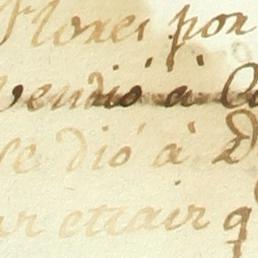 Flores por
vendió á
se dió á D
ar ettair q